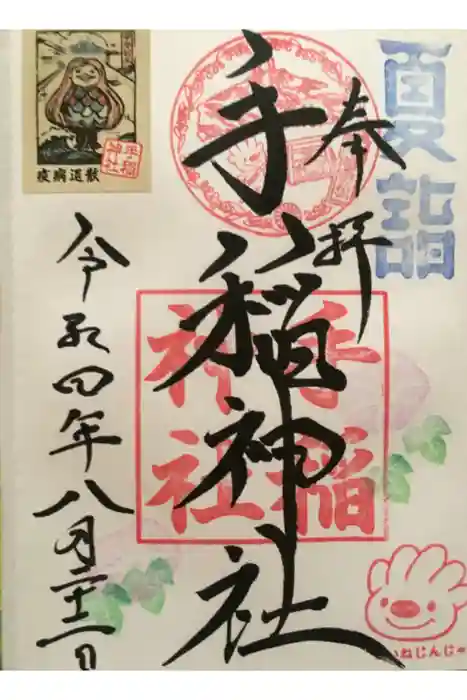 夏詣
奉拝
手稲神社
手稲
神社
令和四年八月二十二日
疫病退散
手稲
神社
いねじんじゃ